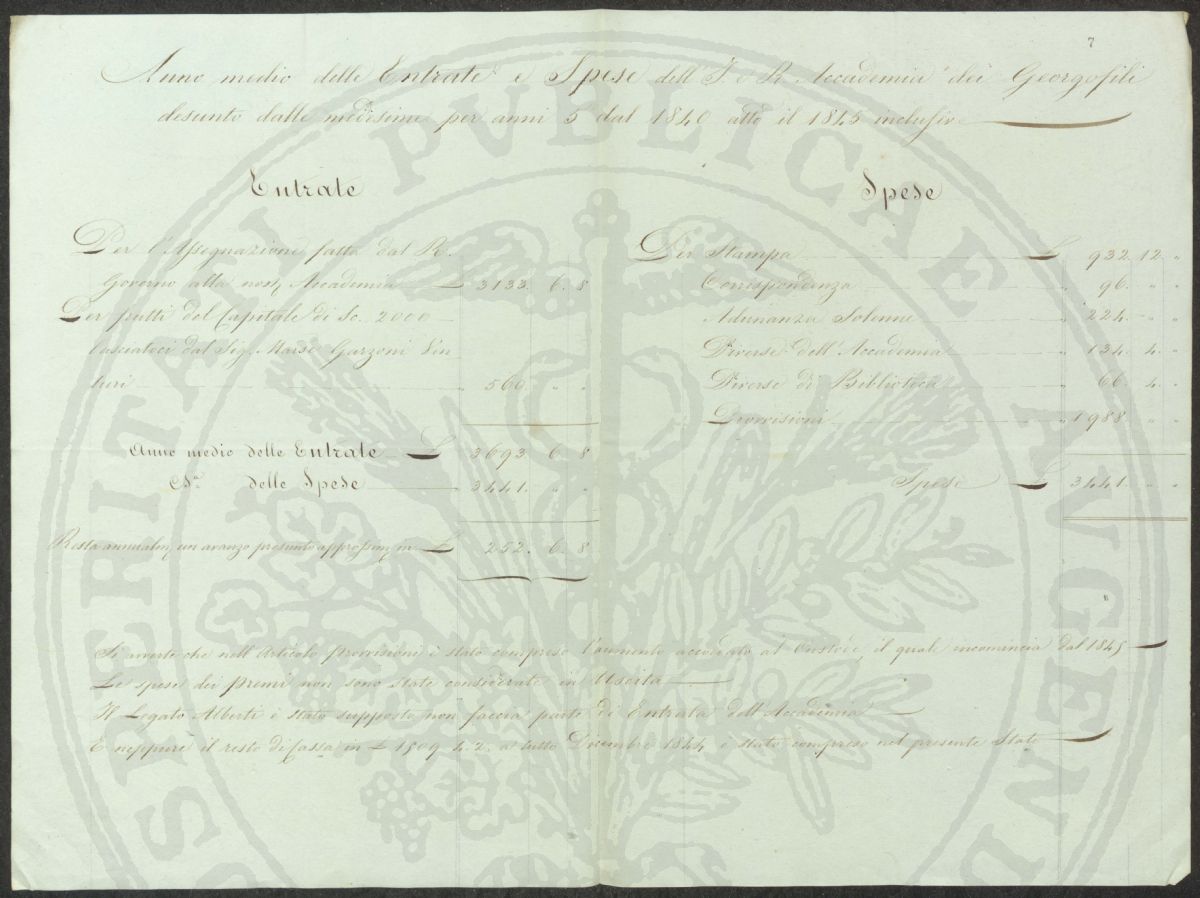 7
Anno medio delle Entrate e Spese dell' I. e R. Accademia dei Georgofili
desunto dalle medesime per anni 5 dal 1840 atto il 1845 inclusive
Entrate
Per l'Assegnazione fatta dal R.
Governo alla nostr Accademia £ 3133. 6. 8
Per frutti del Capitale di Sc. 2000
lasciatoci dal Sig. March Garzoni Ven
turi " 560. " "
Anno medio delle Entrate £ 3693. 6. 8
delle Spese " 3441. " "
Resta annualm un avanzo presunto approssim in £ 252. 6. 8
Spese
Per Stampa £ 932. 12. "
Corrispondenza " 96. " "
Adunanza Solenne " 224. " "
Diverse dell'Accademia " 134. 4. "
Diverse di Biblioteca " 66. 4. "
Provvisioni " 1988. " "
Spese £ 3441. " "
Si avverte che nell'Articolo Provvisioni è stato compreso l'aumento accordato al Custode, il quale incomincia dal 1845
Le spese dei premi non sono state considerate in Uscita
Il Legato Alberti è stato supposto non faccia parte di Entrata dell'Accademia
E neppure il resto di Cassa in £ 1509. 4. 2. a tutto Dicembre 1844 è stato compreso nel presente Stato
PROSPERITATI PVBLICAE AVGENDAE